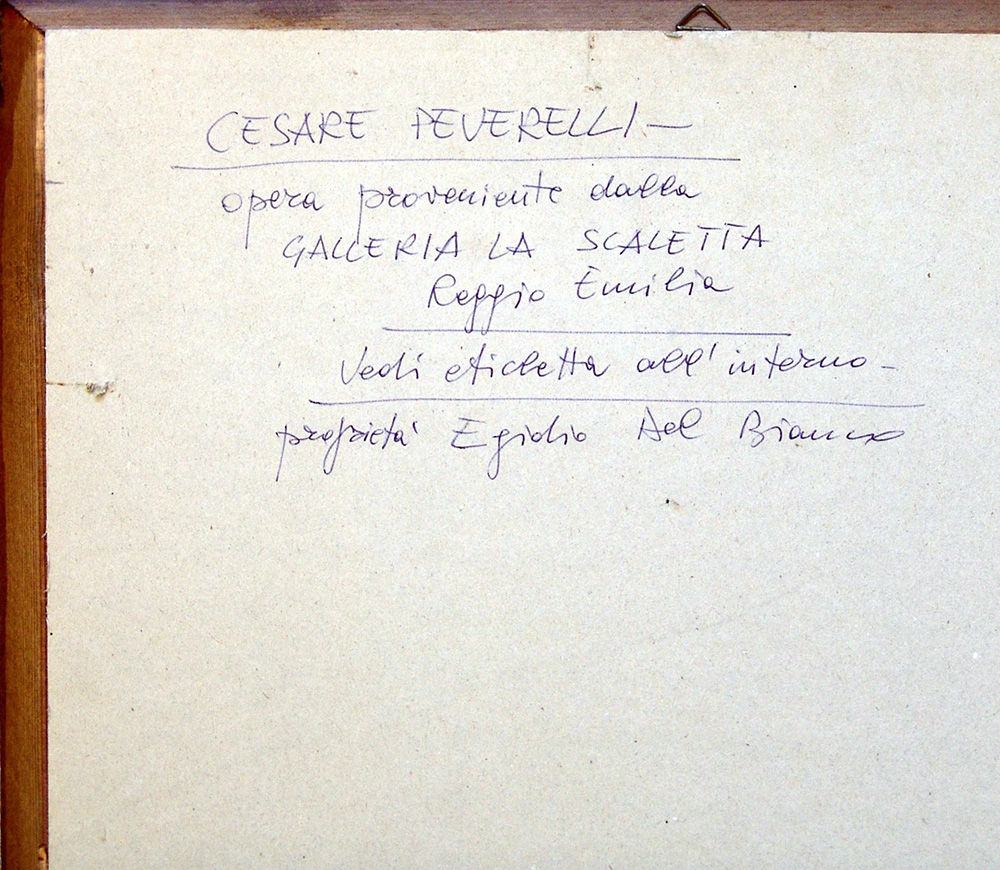 CESARE PEVERELLI —
opera proveniente dalla
GALLERIA LA SCALETTA
Reggio Emilia
Vedi etichetta all'interno -
proprietà Egidio Del Bianco